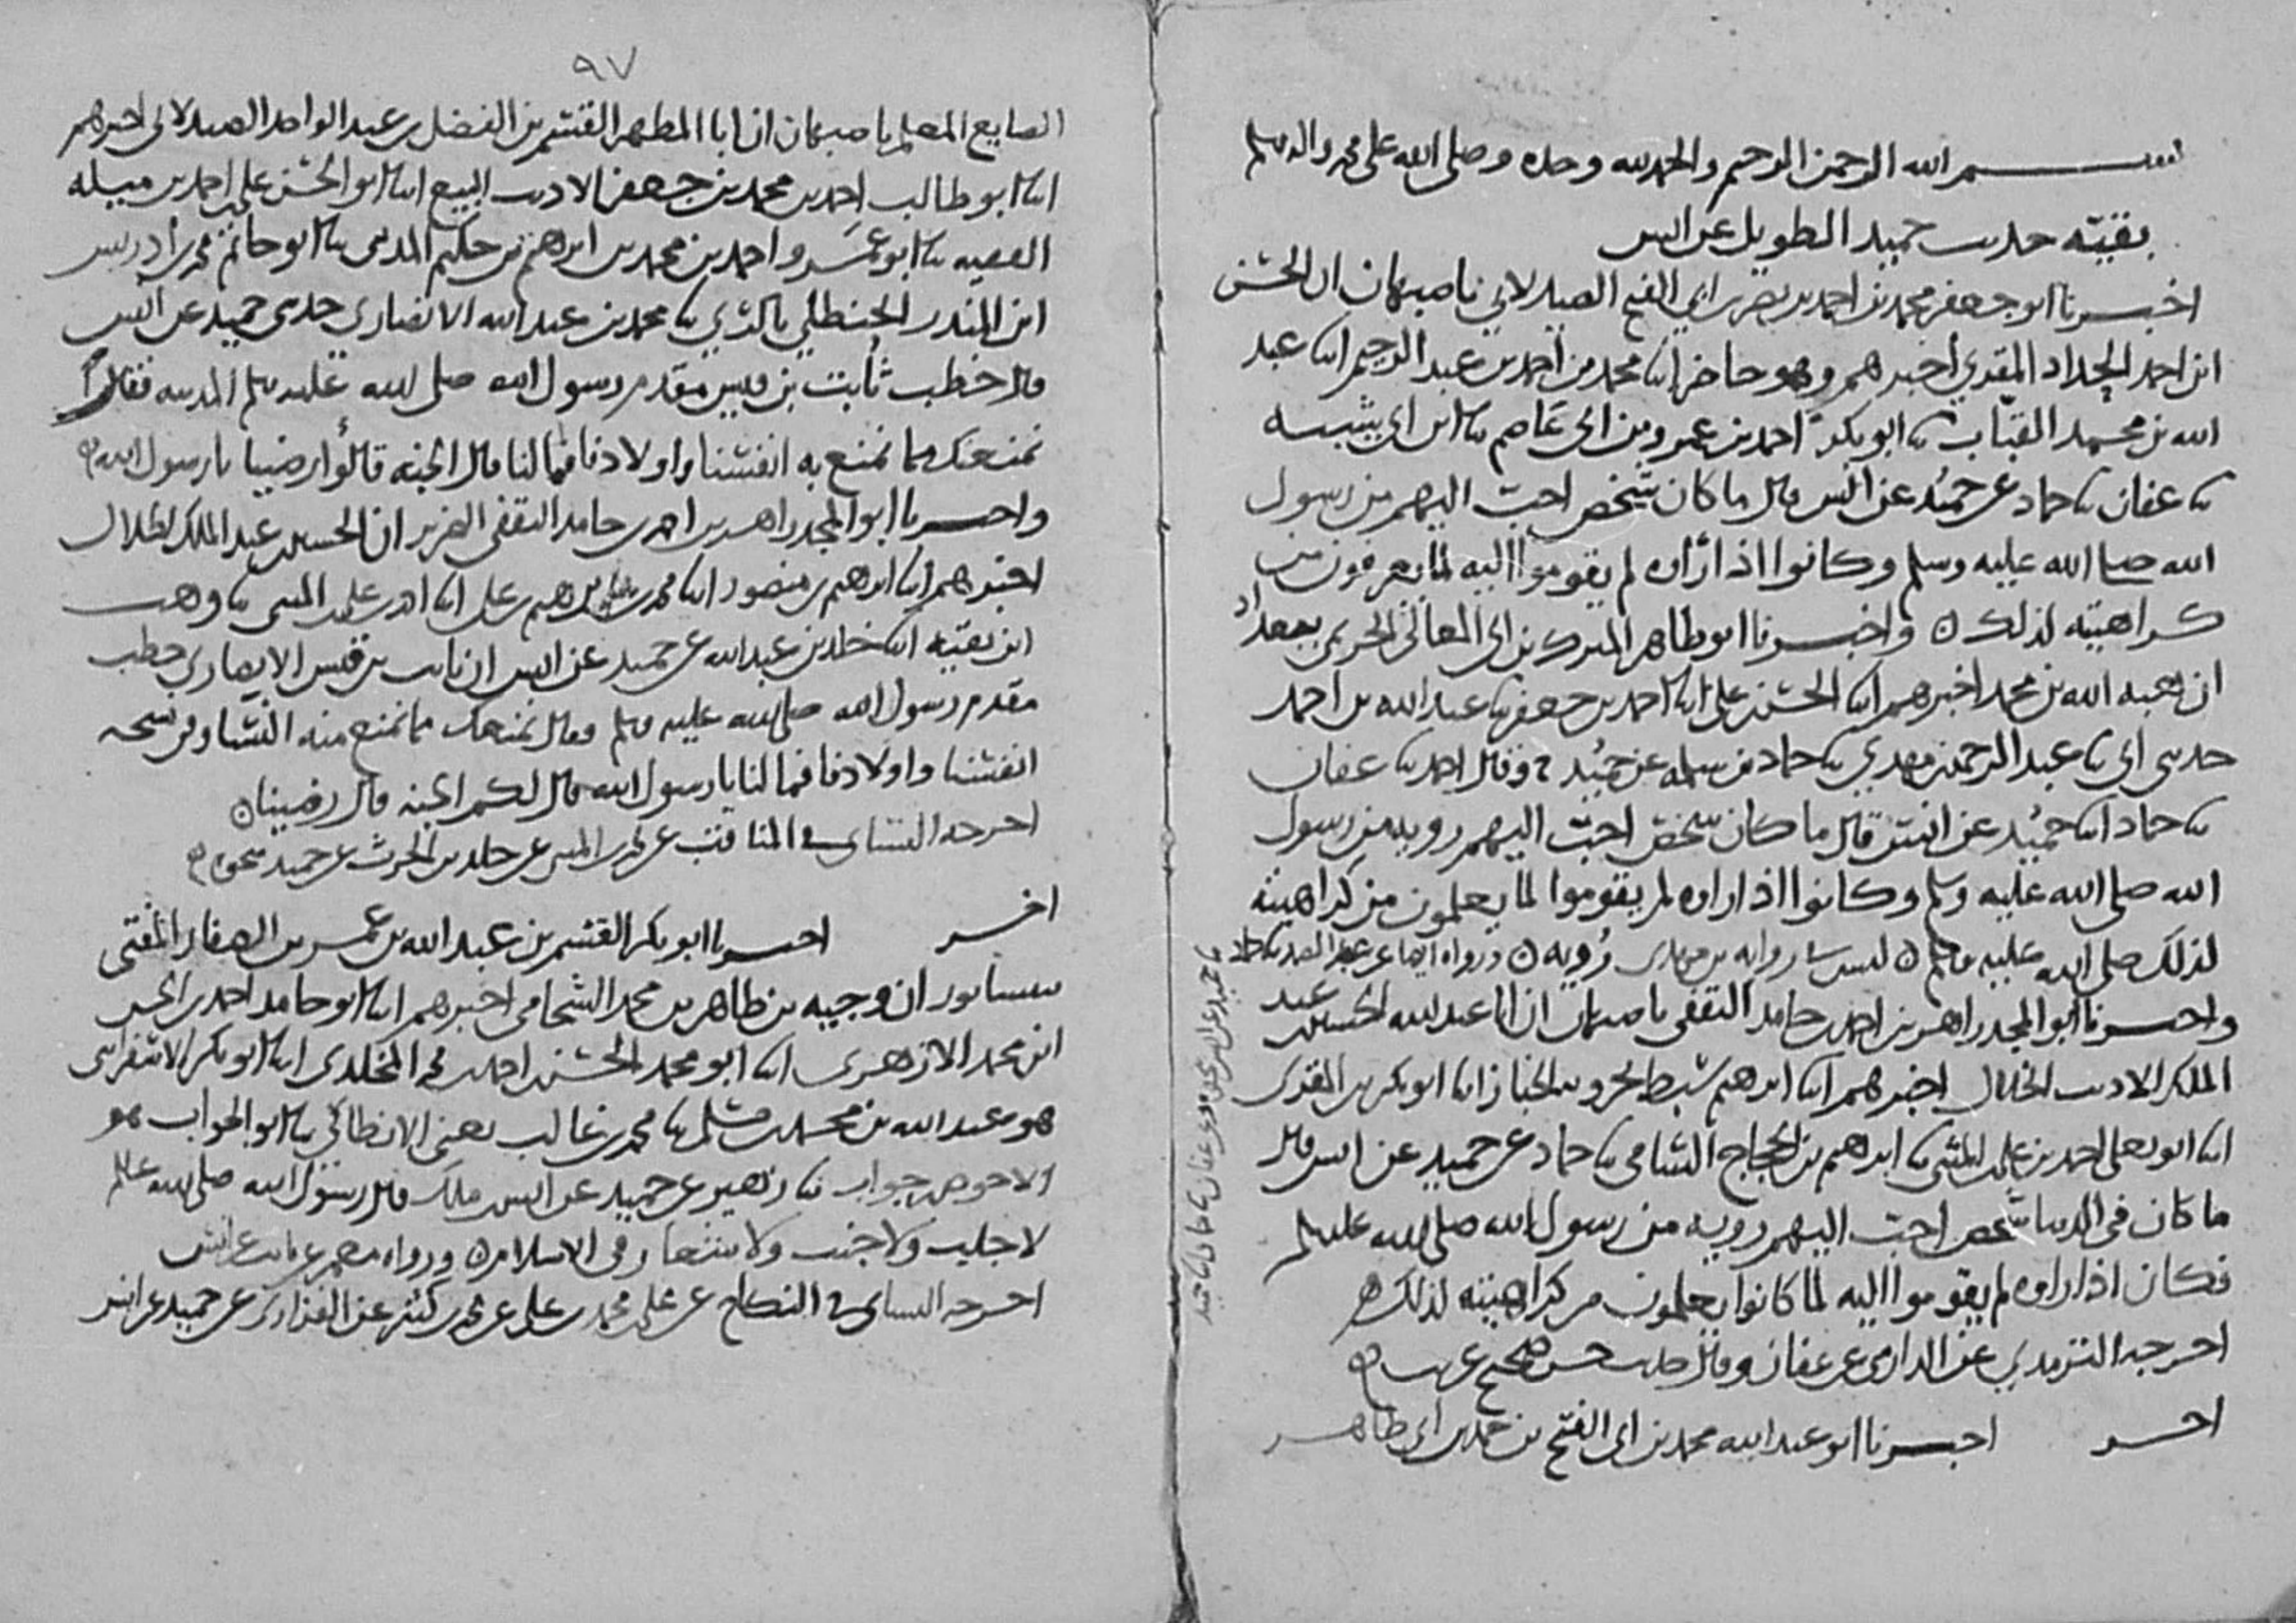 بسم الله الرحمن الرحيم والحمد لله وحده وصلى الله على محمد واله وسلم
بقية حديث حميد الطويل عن انس
اخبرنا ابو جعفر محمد بن احمد بن نصر بن ابي الفتح الصيدلاني باصبهان ان الحسن
ابن احمد الحداد المقري اخبرهم وهو حاضر ابنا محمد بن احمد بن عبد الرحيم ابنا عبد
الله بن محمد القباب ثنا ابو بكر احمد بن عمرو بن ابي عاصم ثنا ابن ابي شيبه
ثنا عفان ثنا حماد عن حميد عن انس قال ما كان شخص احب اليهم من رسول
الله صلى الله عليه وسلم وكانوا اذا رأوه لم يقوموا اليه لما يعرفون من
كراهيته لذلك ن واخبرنا ابو طاهر المبرك بن ابي المعالي الحريمي ببغداد
ان هبه الله بن محمد اخبرهم ابنا الحسن بن علي ابنا احمد بن جعفر ثنا عبد الله بن احمد
حدثني ابي ثنا عبد الرحمن بن مهدي ثنا حماد بن سلمه عن حميد ح وقال احمد ثنا عفان
ثنا حماد ابنا حميد عن انس قال ما كان شخص احب اليهم رويه من رسول
الله صلى الله عليه وسلم وكانوا اذا راوه لم يقوموا لما يعلمون من كراهيته
لذلك صلى الله عليه وسلم ن ليس في رواية بن مهدي رُويه ن ورواه ايضا عن عبد الصمد ثنا حماد
واخبرنا ابو المجد زاهر بن احمد بن حامد الثقفي باصبهان ان ابا عبد الله الحسين بن عبد
الملك الاديب الخلال اخبرهم ابنا ابرهيم سبط بحرويه الخباز ابنا ابو بكر بن المقري
ابنا ابو يعلى احمد بن علي بن المثنى ثنا ابرهيم بن الحجاج الشامي ثنا حماد عن حميد عن انس قال
ما كان في الدنيا شخص احب اليهم رويه من رسول الله صلى الله عليه وسلم
فكان اذا راوه لم يقوموا اليه لما كانوا يعلمون من كراهيته لذلك
اخرجه الترمذي عن الدارمي عن عفان وقال حديث حسن صحيح غريب
اخر اخبرنا ابو عبد الله محمد بن ابي الفتح بن محمد بن ابي طاهر
٩٧
الصايغ المعلم باصبهان ان ابا المطهر القسم بن الفضل بن عبد الواحد الصيدلاني اخبرهم
ابنا ابو طالب احمد بن محمد بن جعفر الاديب البيع ابنا ابو الحسن علي بن احمد بن ميله
الفقيه ثنا ابو عمرو احمد بن محمد بن ابرهيم بن حكيم المديني ثنا ابو حاتم محمد بن ادريس
ابن المنذر الحنظلي بالري ثنا محمد بن عبد الله الانصاري حدثني حميد عن انس
قال خطب ثابت بن قيس مقدم رسول الله صلى الله عليه وسلم المدينه فقال
نمنعك مما نمنع به انفسنا واولادنا فما لنا قال الجنه قالوا رضينا يا رسول الله
واخبرنا ابو المجد زاهر بن احمد بن حامد الثقفي ان الحسين بن عبد الملك الخلال
اخبرهم ابنا ابرهيم بن منصور ابنا محمد بن ابرهيم بن علي ابنا احمد بن علي بن المثنى ثنا وهب
ابن بقيه ابنا خالد بن عبد الله عن حميد عن انس ان ثابت بن قيس الانصاري خطب
مقدم رسول الله صلى الله عليه وسلم وقال نمنعك مما نمنع منه انفسنا وفي نسخه
انفسنا واولادنا فما لنا يا رسول الله قال لكم الجنه قال رضينا ن
اخرجه النسائي في المناقب عن محمد بن المثنى عن خالد بن الحرث عن حميد نحوه
اخر اخبرنا ابو بكر القسم بن عبد الله بن عمر بن الصفار المفتي
بنيسابور ان وجيه بن طاهر بن محمد الشحامي اخبرهم ابنا ابو حامد احمد بن الحسن
ابن محمد الازهري ابنا ابو محمد الحسن بن احمد بن محمد المخلدي ابنا ابو بكر الاسفرايني
هو عبد الله بن محمد بن مسلم ثنا محمد بن غالب يعني الانطاكي ثنا ابو الجواب هو
الاحوص بن جواب ثنا زهير عن حميد عن انس بن ملك قال رسول الله صلى الله عليه وسلم
لا جلب ولا جنب ولا شغار في الاسلام ن ورواه معمر عن ثابت عن انس
اخرجه النسائي في النكاح عن علي بن محمد بن علي عن محمد بن كثير عن الفزاري عن حميد عن انس